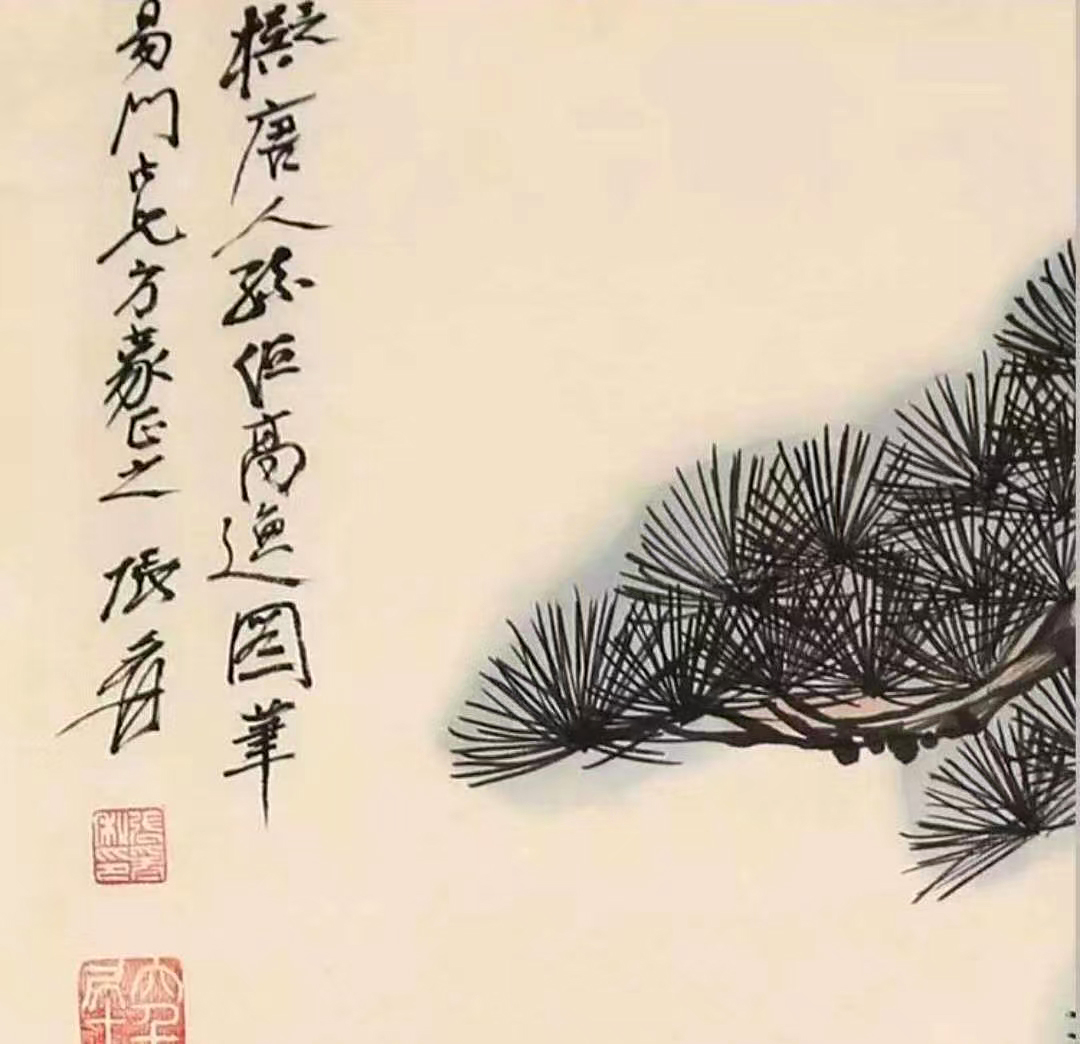 擬唐人孫位高逸圖筆
易門吾兄方家正之 張爰
張爰私印
大千居士